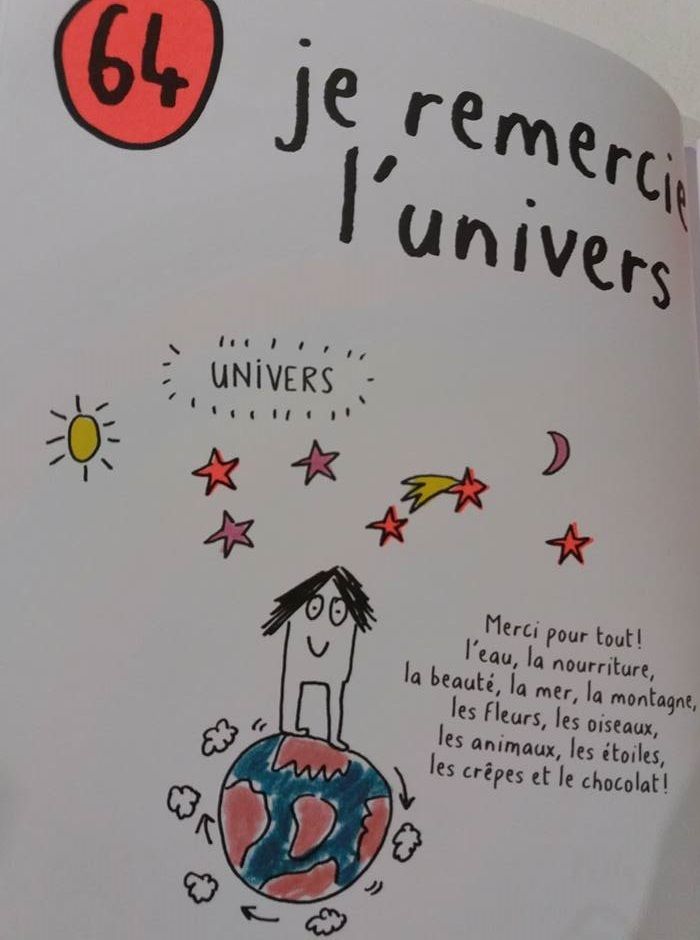 64
je remercie
l'univers
UNIVERS
Merci pour tout!
l'eau, la nourriture,
la beauté, la mer, la montagne,
les fleurs, les oiseaux,
les animaux, les étoiles,
les crêpes et le chocolat!